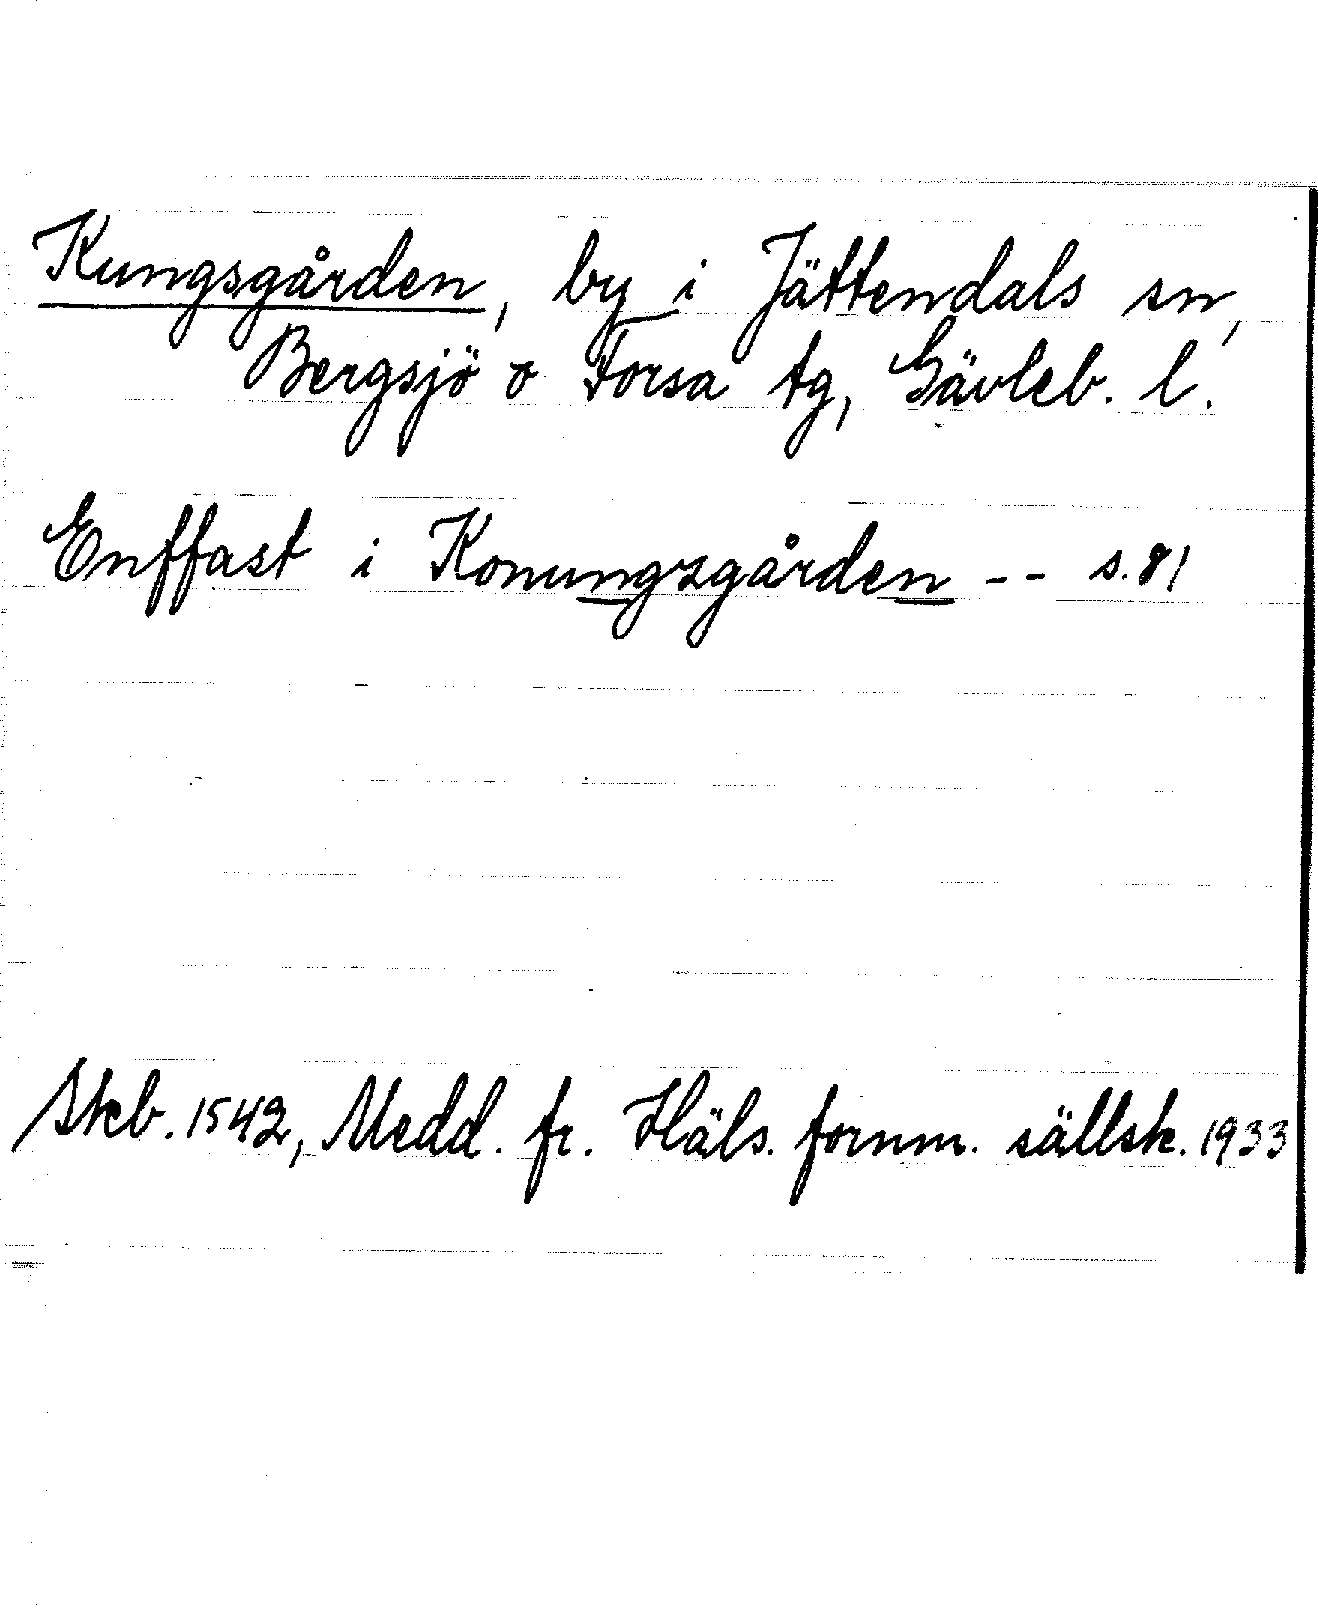 Kungsgården, by i Jättendals sn,
Bergsjö o Forsa tg, Gävleb. l.
Enffast i Konungsgården -- s. 81
Skb. 1542, Medd. fr. Häls. fornm. sällsk. 1933